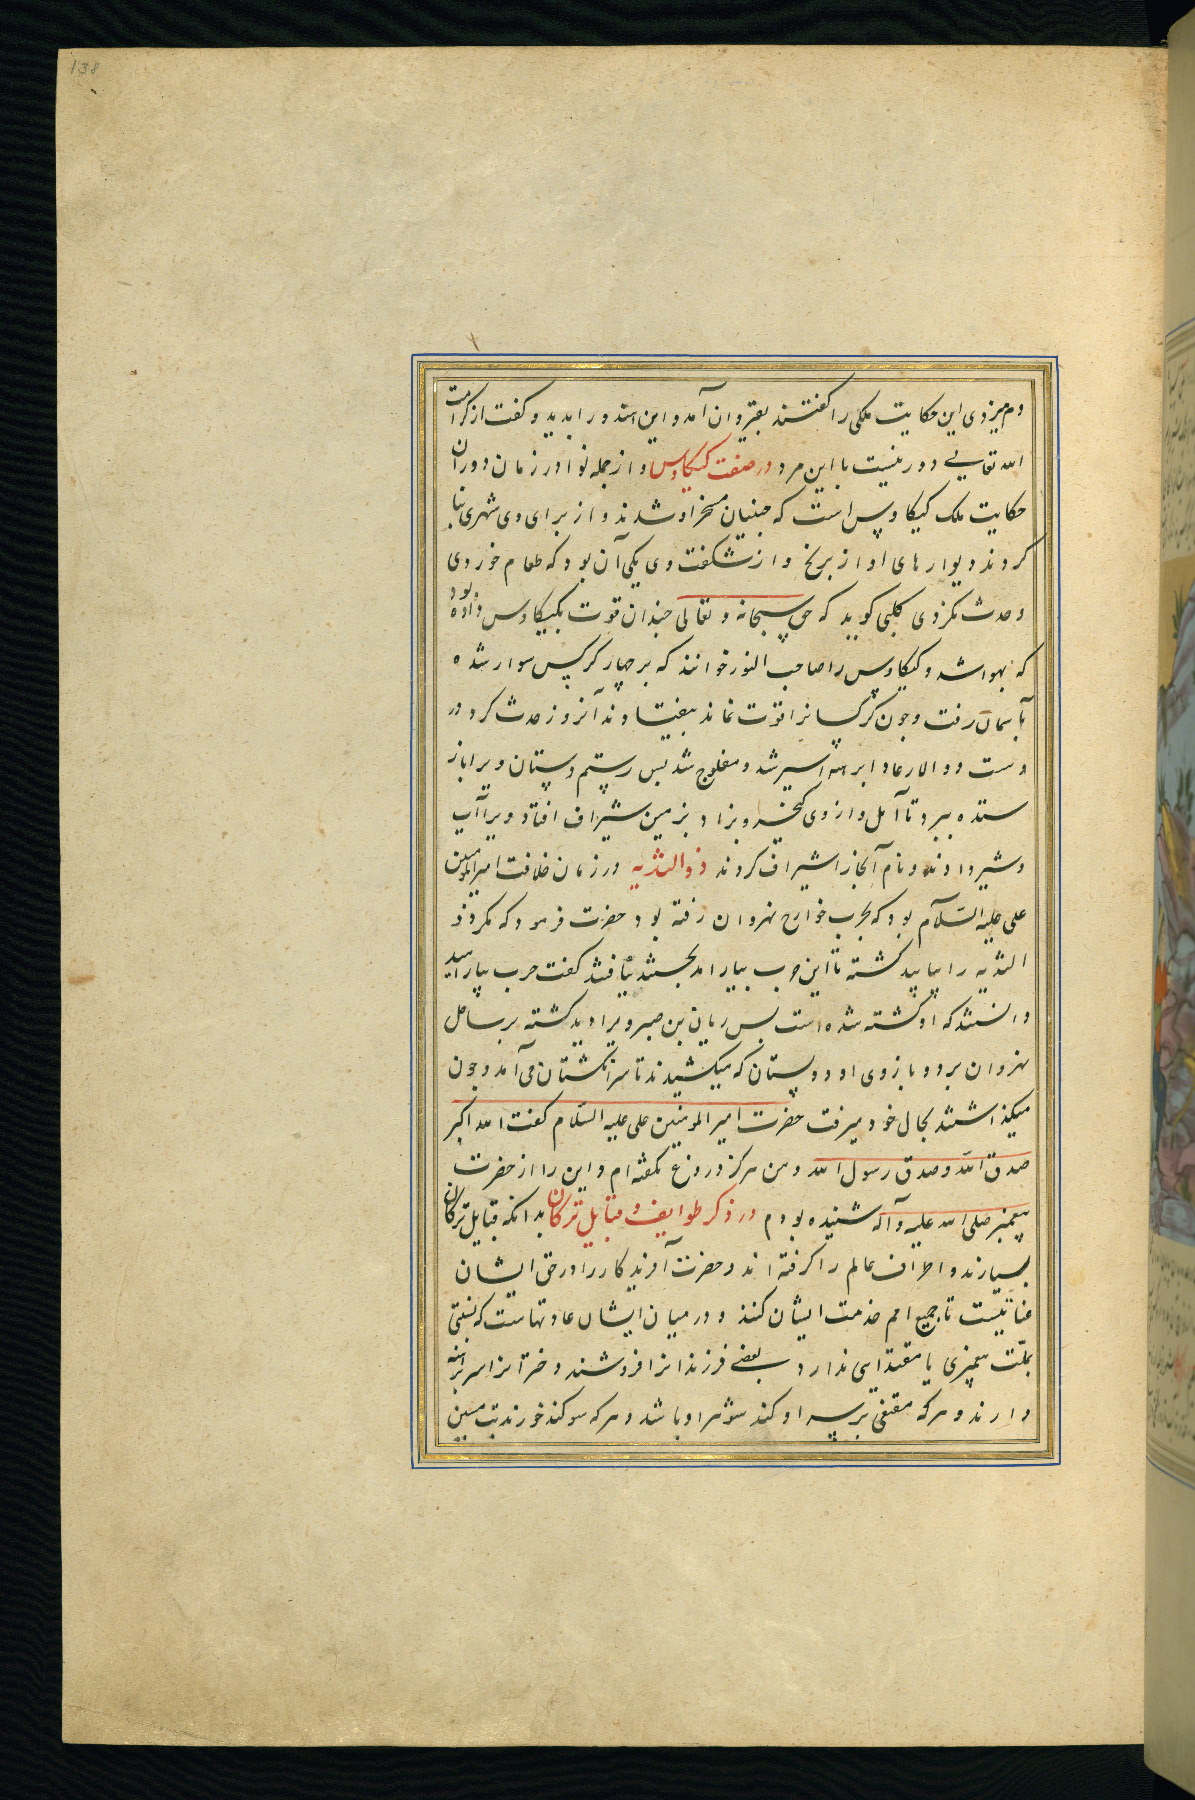 138
و م میزدی این حکایت ملکی را کفتند بقیروان آمد و این اسد و را بدید و کفت از کرامت
الله تعالی دور نیست با این مرد در صفت کیکاوس و از جمله نوادر زمان دوران
حکایت ملک کیکاوس است که جنیان مسخر او شدند و از برای وی شهری بنا
کردند دیوارهای او از برنج و از شکفت وی یکی آن بود که طعام خوردی
و حدث نکردی کلبی کوید که حق سبحانه و تعالی چندان قوت بکیکاوس داده بود
که بهوا شد و کیکاوس را صاحب النور خوانند که بر چهار کرکس سوار شده
بآسمان رفت و چون کرکسانرا قوت نماند بیفتادند آنروز حدث کرد و در
دست ذو الاذعار ابرهه اسیر شد و مفلوج شد پس رستم دستان ویرا باز
ستده ببرد تا آمل و از وی کیخسرو بزاد بزمین شیراف افتاد ویرا آب
و شیر دادند و نام آنجا را شیراف کردند ذو الثدیه در زمان خلافت امیر المومنین
علی علیه السّلام بود که بحرب خوارج نهروان رفته بود حضرت فرمود که مکر ذو
الثدیه را بیابید کشته تا این حرب بیارامد بجستند نیافتند کفت حرب بیارامید
دانستند که او کشته شده است پس ریان بن صبر ویرا دید کشته بر ساحل
نهروان برد و بازوی او دو پستان که میکشیدند تا سر انکشتان می آمد و چون
میکذاشتند بحال خود میرفت حضرت امیر المومنین علی علیه السّلام کفت الله اکبر
صدق الله و صدق رسول الله و من هرکز دروغ نکفته ام و این را از حضرت
پیغمبر صلی الله علیه و آله شنیده بودم در ذکر طوایف و قبایل ترکان بدانکه قبایل ترکان
بسیارند و اطراف عالم را کرفته اند و حضرت آفریدکار را در حق ایشان
عنایتیست تا جمیع امم خدمت ایشان کنند و در میان ایشان عادتهاست که نسبتی
بملّت پیغمبری یا مقتدایی ندارد بعضی فرزندانرا فروشند و دخترانرا سر برهنه
دارند و هرکه مقنعی بر سر او کند شوهر او باشد و هرکه سوکند خورند بت مسین